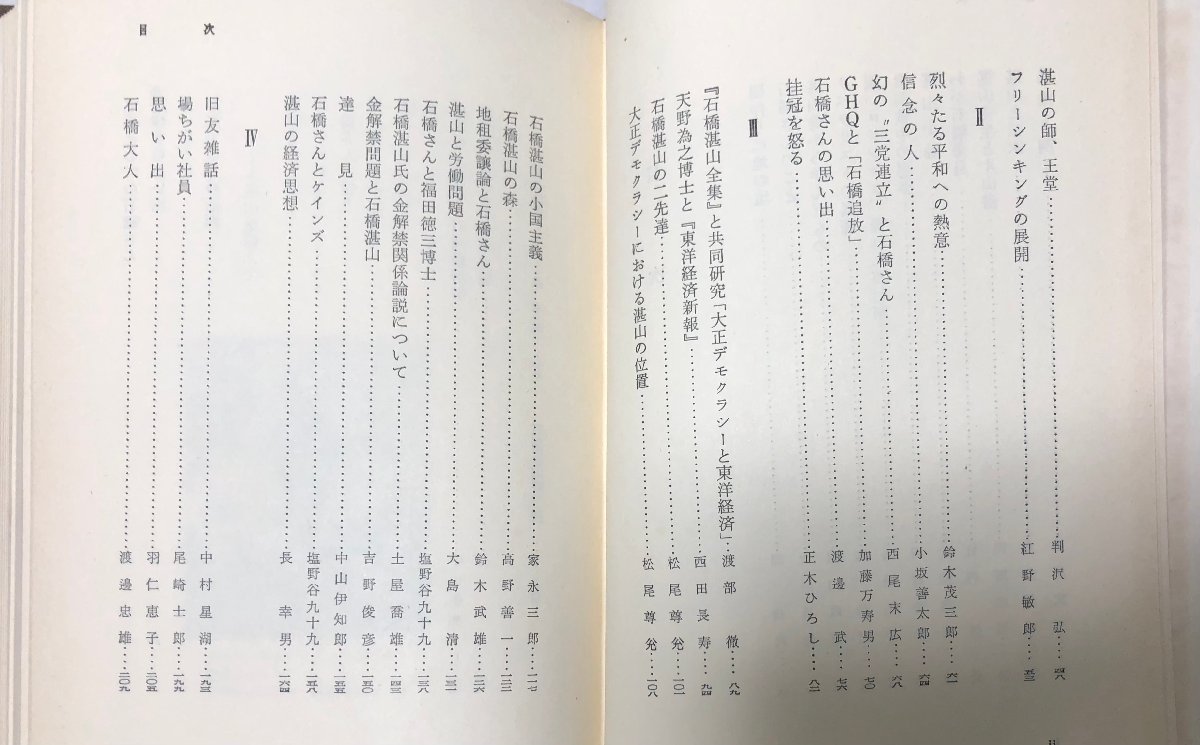 湛山の師、王堂……判沢　弘…四八
フリーシンキングの展開……江野敏郎…五三
Ⅱ
烈々たる平和への熱意……鈴木茂三郎…六一
信念の人……小坂善太郎…六四
幻の〝三党連立〟と石橋さん……西尾末広…六八
GHQと「石橋追放」……加藤万寿男…七〇
石橋さんの思い出……渡邊　武…七六
挂冠を怒る……正木ひろし…八二
Ⅲ
『石橋湛山全集』と共同研究「大正デモクラシーと東洋経済」…渡部　徹…八九
天野為之博士と『東洋経済新報』……西田長寿…九四
石橋湛山の二先達……松尾尊兊…一〇一
大正デモクラシーにおける湛山の位置……松尾尊兊…一〇八
11
石橋湛山の小国主義……家永三郎…一一七
石橋湛山の森……高野善一…一二二
地租委譲論と石橋さん……鈴木武雄…一二六
湛山と労働問題……大島　清…一三一
石橋さんと福田徳三博士……塩野谷九十九…一三八
石橋湛山氏の金解禁関係論説について……土屋喬雄…一四三
金解禁問題と石橋湛山……吉野俊彦…一五〇
達見……中山伊知郎…一五五
石橋さんとケインズ……塩野谷九十九…一五八
湛山の経済思想……長　幸男…一六四
Ⅳ
旧友雑話……中村星湖…一九三
場ちがい社員……尾崎士郎…一九九
思い出……羽仁恵子…二〇五
石橋大人……渡邊忠雄…二〇九
目次